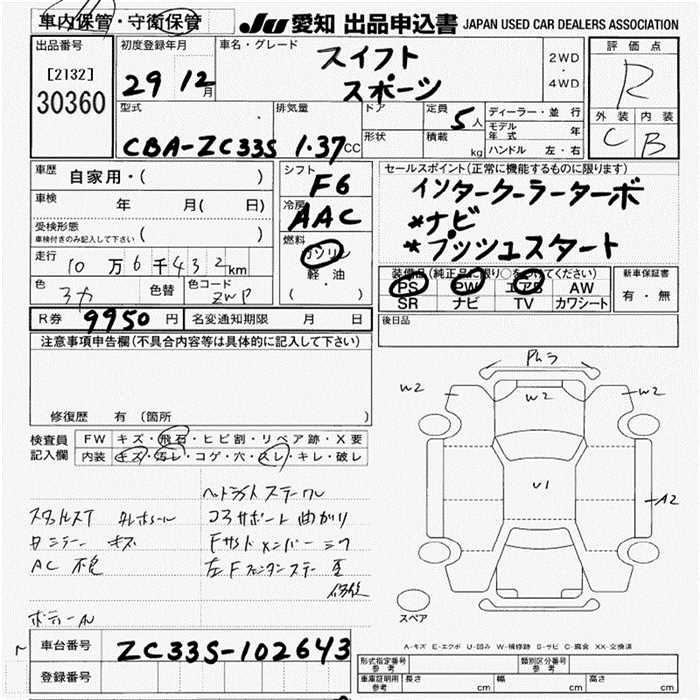 車内保管・守衛保管
JU 愛知 出品申込書 JAPAN USED CAR DEALERS ASSOCIATION
出品番号
[2132]
30360
初度登録年月
29 12月
車名・グレード
スイフト
スポーツ
2WD
・
4WD
評価点
R
外装 内装
C B
型式
CBA-ZC33S
排気量
1.37cc
ドア
形状
定員
5人
積載
kg
ディーラー・並行
モデル年式 年
ハンドル 左・右
車歴 自家用・( )
車検 年 月( 日)
受検形態
車検付きのみ記入して下さい ( )
走行 10万6千432km
色
色替
色コード
ZWP
シフト
F6
冷房
AAC
燃料
ガソリン
軽油
( ・ )
セールスポイント(正常に機能するものに限ります)
インタークーラーターボ
*ナビ
*プッシュスタート
装備品(純正品に限り○をつけてください)
PS PW エアB AW
SR ナビ TV カワシート
新車保証書
有・無
R券 9950円
名変通知期限 月 日
後日品
注意事項申告欄(不具合内容等は具体的に記入して下さい)
修復歴 有 (箇所 )
検査員記入欄
FW キズ・飛石・ヒビ割・リペア跡・X要
内装 キズ・汚レ・コゲ・穴・スレ・キレ・破レ
ヘットライト ステー ワレ
コアサポート 曲がり
Fサイドメンバー
左Fフェンダーステー
修復
キズ
AC
W2
W2
W2
U1
A2
スペア
A-キズ E-エクボ U-凹み W-補修跡 S-サビ C-腐食 XX-交換済
車台番号 ZC33S-102643
登録番号
形式指定番号
参考
類別区分番号
参考
車庫証明用
参考
長さ cm
幅 cm
高さ cm